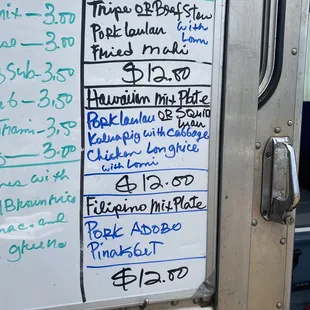 mix-3.00
-3.00
Sub-3.50
-3.50
-3.50
-3.00
with
Brown rice
mac and
greens
Tripe OR Beef Stew
Pork laulau with
Fried mahi Lomi
$12.00
Hawaiian Mix Plate
Pork laulau OR SQUID
luau
Kalua pig with Cabbage
Chicken Long rice
with Lomi
$12.00
Filipino Mix Plate
PORK ADOBO
PINAKBET
$12.00